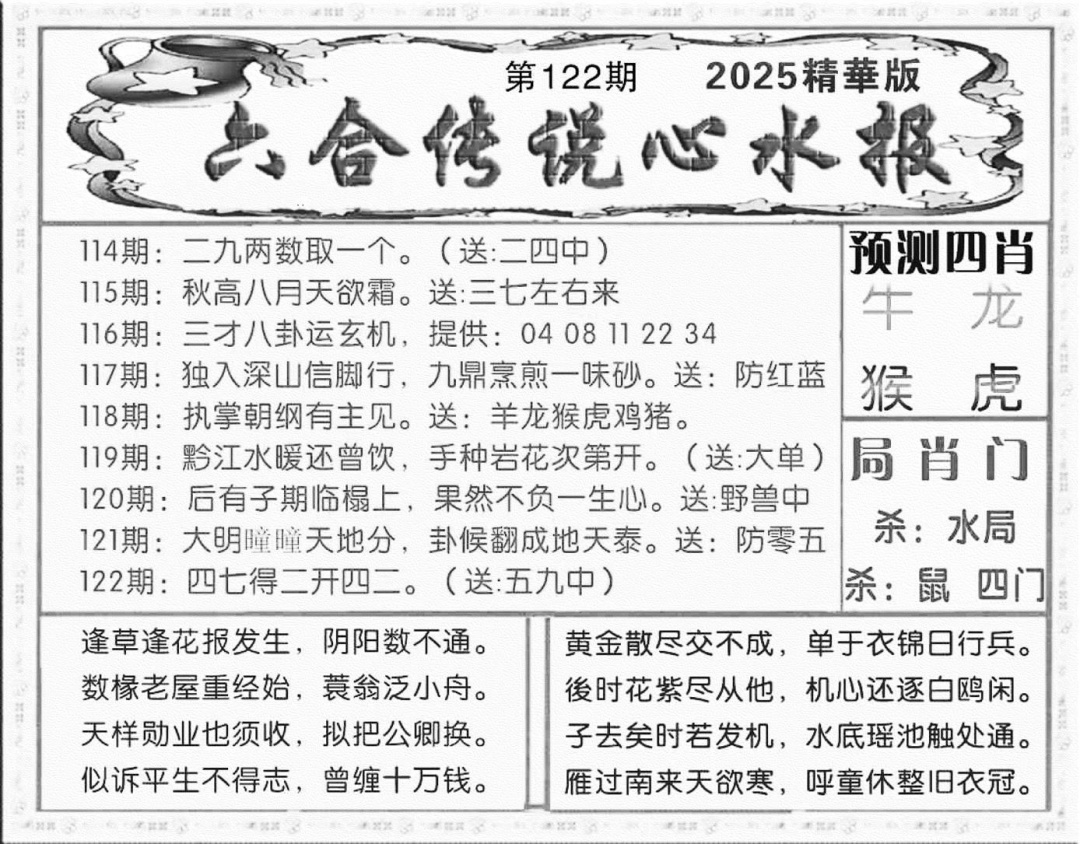 第122期 2025精華版
六合传说心水报
114期：二九两数取一个。（送:二四中）
115期：秋高八月天欲霜。送:三七左右来
116期：三才八卦运玄机，提供：04 08 11 22 34
117期：独入深山信脚行，九鼎烹煎一味砂。送：防红蓝
118期：执掌朝纲有主见。送：羊龙猴虎鸡猪。
119期：黔江水暖还曾饮，手种岩花次第开。（送:大单）
120期：后有子期临榻上，果然不负一生心。送:野兽中
121期：大明曈曈天地分，卦候翻成地天泰。送：防零五
122期：四七得二开四二。（送:五九中）
预测四肖
牛 龙
猴 虎
局肖门
杀：水局
杀：鼠 四门
逢草逢花报发生，阴阳数不通。
数椽老屋重经始，蓑翁泛小舟。
天样勋业也须收，拟把公卿换。
似诉平生不得志，曾缠十万钱。
黄金散尽交不成，单于衣锦日行兵。
後時花紫尽从他，机心还逐白鸥闲。
子去矣时若发机，水底瑶池触处通。
雁过南来天欲寒，呼童休整旧衣冠。